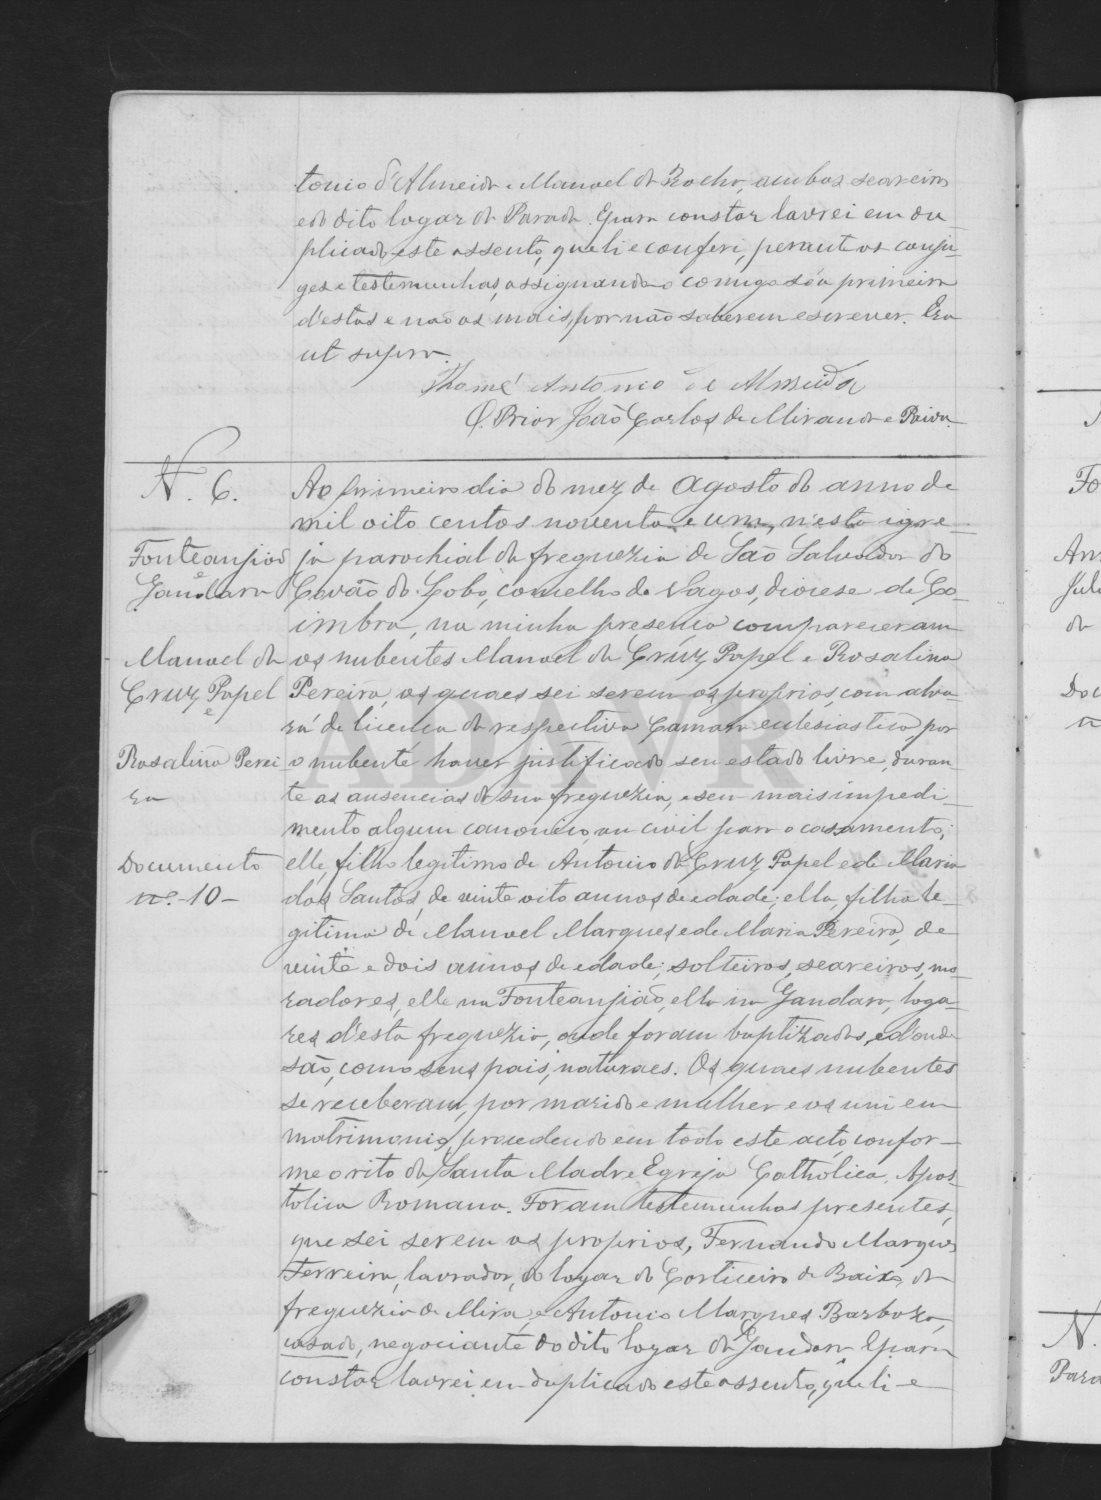 tonio d'Almeida e Manoel da Rocha, ambos seareiros
e do dito logar da Parada. E para constar lavrei em du
plicado este assento, que li e conferi, perante os conju-
ges e testemunhas, assignando comigo só a primeira
d'estas e não os mais, por não saberem escrever. Era
ut supra.
Thomé Antonio de Almeida
O Prior João Carlos de Miranda e Paiva.
N. 6.
Fonteanjião
e
Gandara
Manoel da
Cruz Papel
e
Rosalina Perei
ra
Documento
nº. 10-
Ao primeiro dia do mez de Agosto do anno de
mil oito centos noventa e um, n'esta igre-
ja parochial da freguezia de São Salvador do
Covão do Lobo, concelho de Vagos, diocese de Co-
imbra, na minha presença compareceram
os nubentes Manoel da Cruz Papel e Rosalina
Pereira, os quaes sei serem os proprios, com alva
rá de licença da respectiva Camara eclesiastica por
o nubente haver justificado seu estado livre, duran-
te as ausencias da sua freguezia, e sem mais impedi-
mento algum canonico, ou civil para o casamento;
elle, filho legitimo de Antonio da Cruz Papel e de Maria
dos Santos, de vinte oito annos de edade; ella, filha le-
gitima de Manoel Marques e de Maria Pereira, de
vinte e dois annos de edade; solteiros, seareiros, mo-
radores, elle na Fonteanjião, ella na Gandara, loga-
res d'esta freguezia, onde foram baptizados, e d'onde
são, como seus pais, naturaes. Os quaes nubentes
se receberam, por marido e mulher e os uni em
matrimonio, procedendo em todo este acto confor-
me o rito da Santa Madre Egreja Catholica, Apos-
tolica Romana. Foram testemunhas presentes,
que sei serem os proprios, Fernando Marques
Ferreira, lavrador, do logar do Corticeiro de Baixo, da
freguezia de Mira, e Antonio Marques Barboza,
casado, negociante do dito logar da Gandara E para
constar lavrei em duplicado este assento, que li e
ADAVR